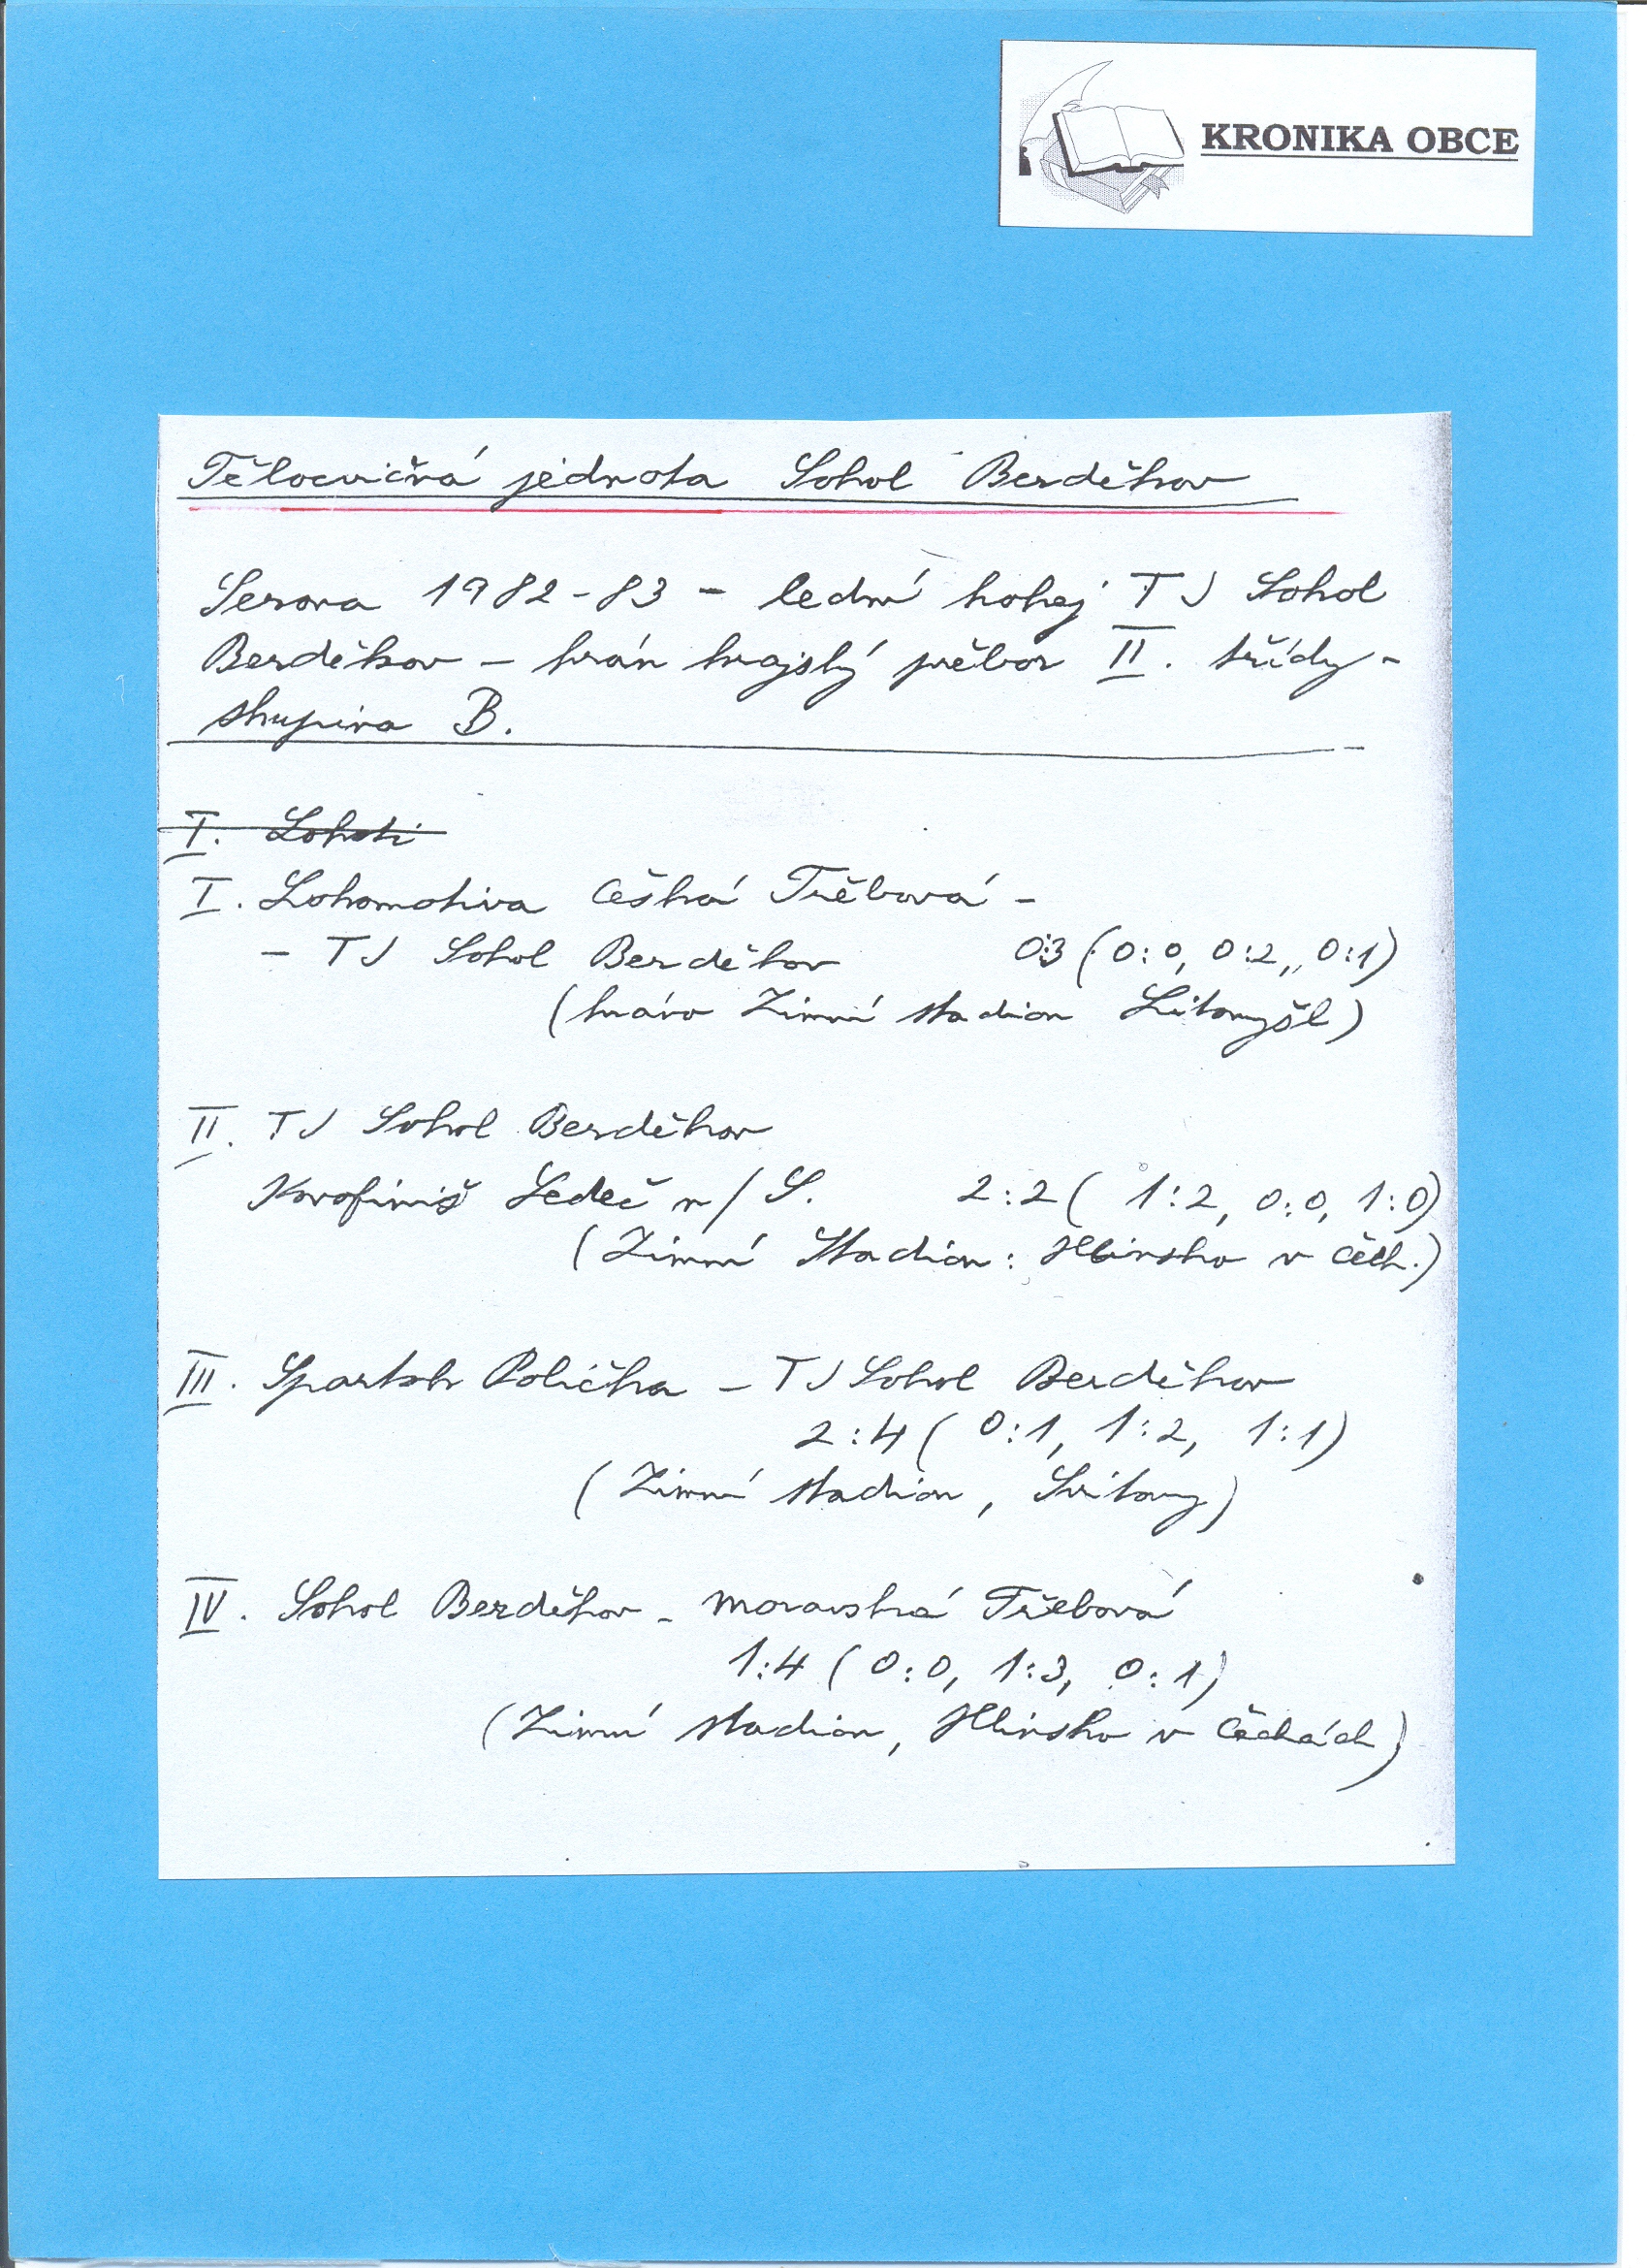 KRONIKA OBCE
Tělocvičná jednota Sokol Berděkov
Sezona 1982-83 - lední hokej TJ Sokol
Berděkov - hrán krajský přebor II. třídy -
skupina B.
I. Lokoti
I. Lokomotiva Česká Třebová -
- TJ Sokol Berděkov 0:3 (0:0, 0:2, 0:1)
(hráno Zimní stadion Litomyšl)
II. TJ Sokol Berděkov
Kovofiniš Ledeč n/S. 2:2 (1:2, 0:0, 1:0)
(Zimní Stadion: Hlinsko v Čech.)
III. Spartak Polička - TJ Sokol Berděkov
2:4 (0:1, 1:2, 1:1)
(Zimní stadion, Svitavy)
IV. Sokol Berděkov - Moravská Třebová
1:4 (0:0, 1:3, 0:1)
(Zimní stadion, Hlinsko v Čechách)